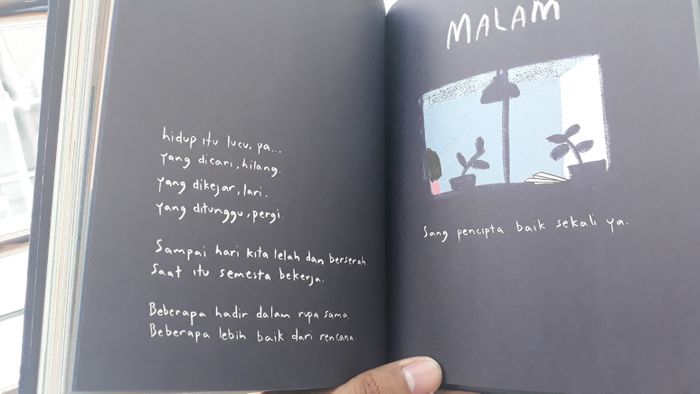 hidup itu lucu, ya...
yang dicari, hilang.
yang dikejar, lari.
yang ditunggu, pergi.
Sampai hari kita lelah dan berserah
saat itu semesta bekerja.
Beberapa hadir dalam rupa sama.
Beberapa lebih baik dari rencana.
MALAM
Sang pencipta baik sekali ya.